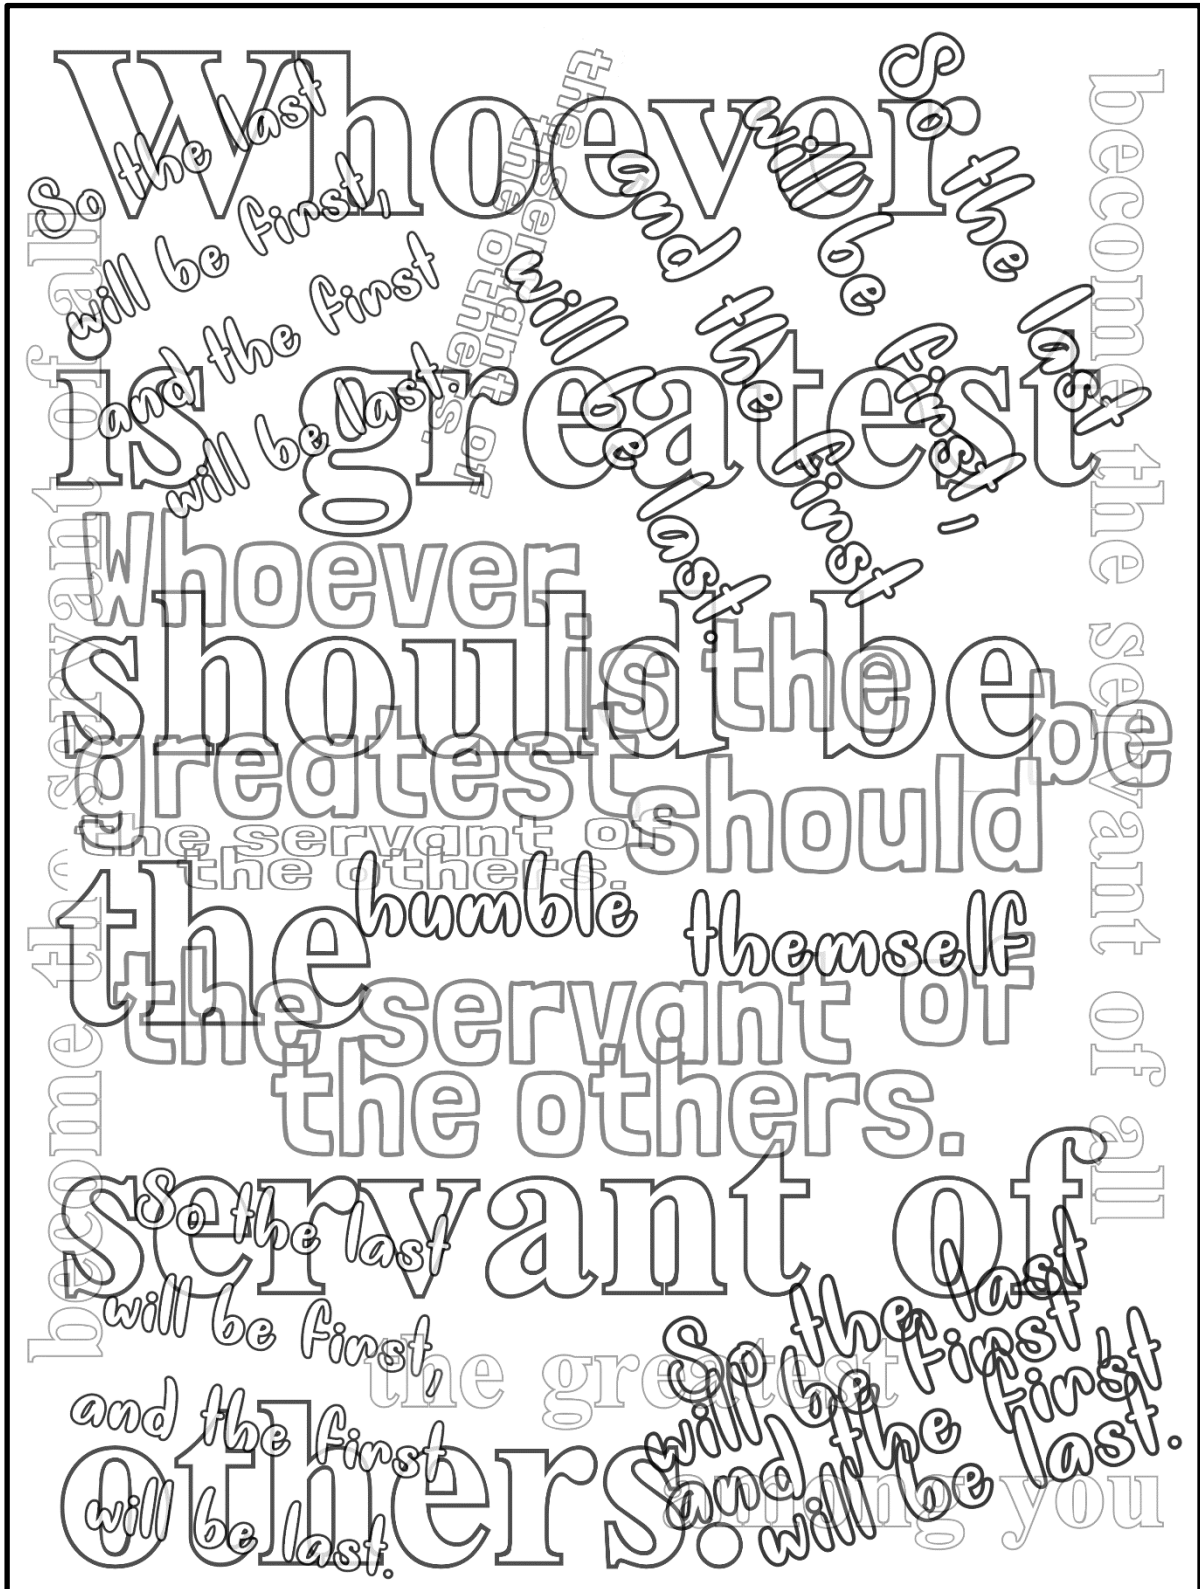 Whoever
is greatest
should be
the
servant of
others.
So the last
will be first,
and the first
will be last.
the servant of
the others.
So the last
will be first,
and the first
will be last.
become the servant of all
become the servant of all
Whoever
is the
greatest
should
be
the servant of
the others.
humble themself
the servant of
the others.
So the last
will be first,
and the first
will be last.
the greatest
among you
So the last
will be first,
and the first
will be last.